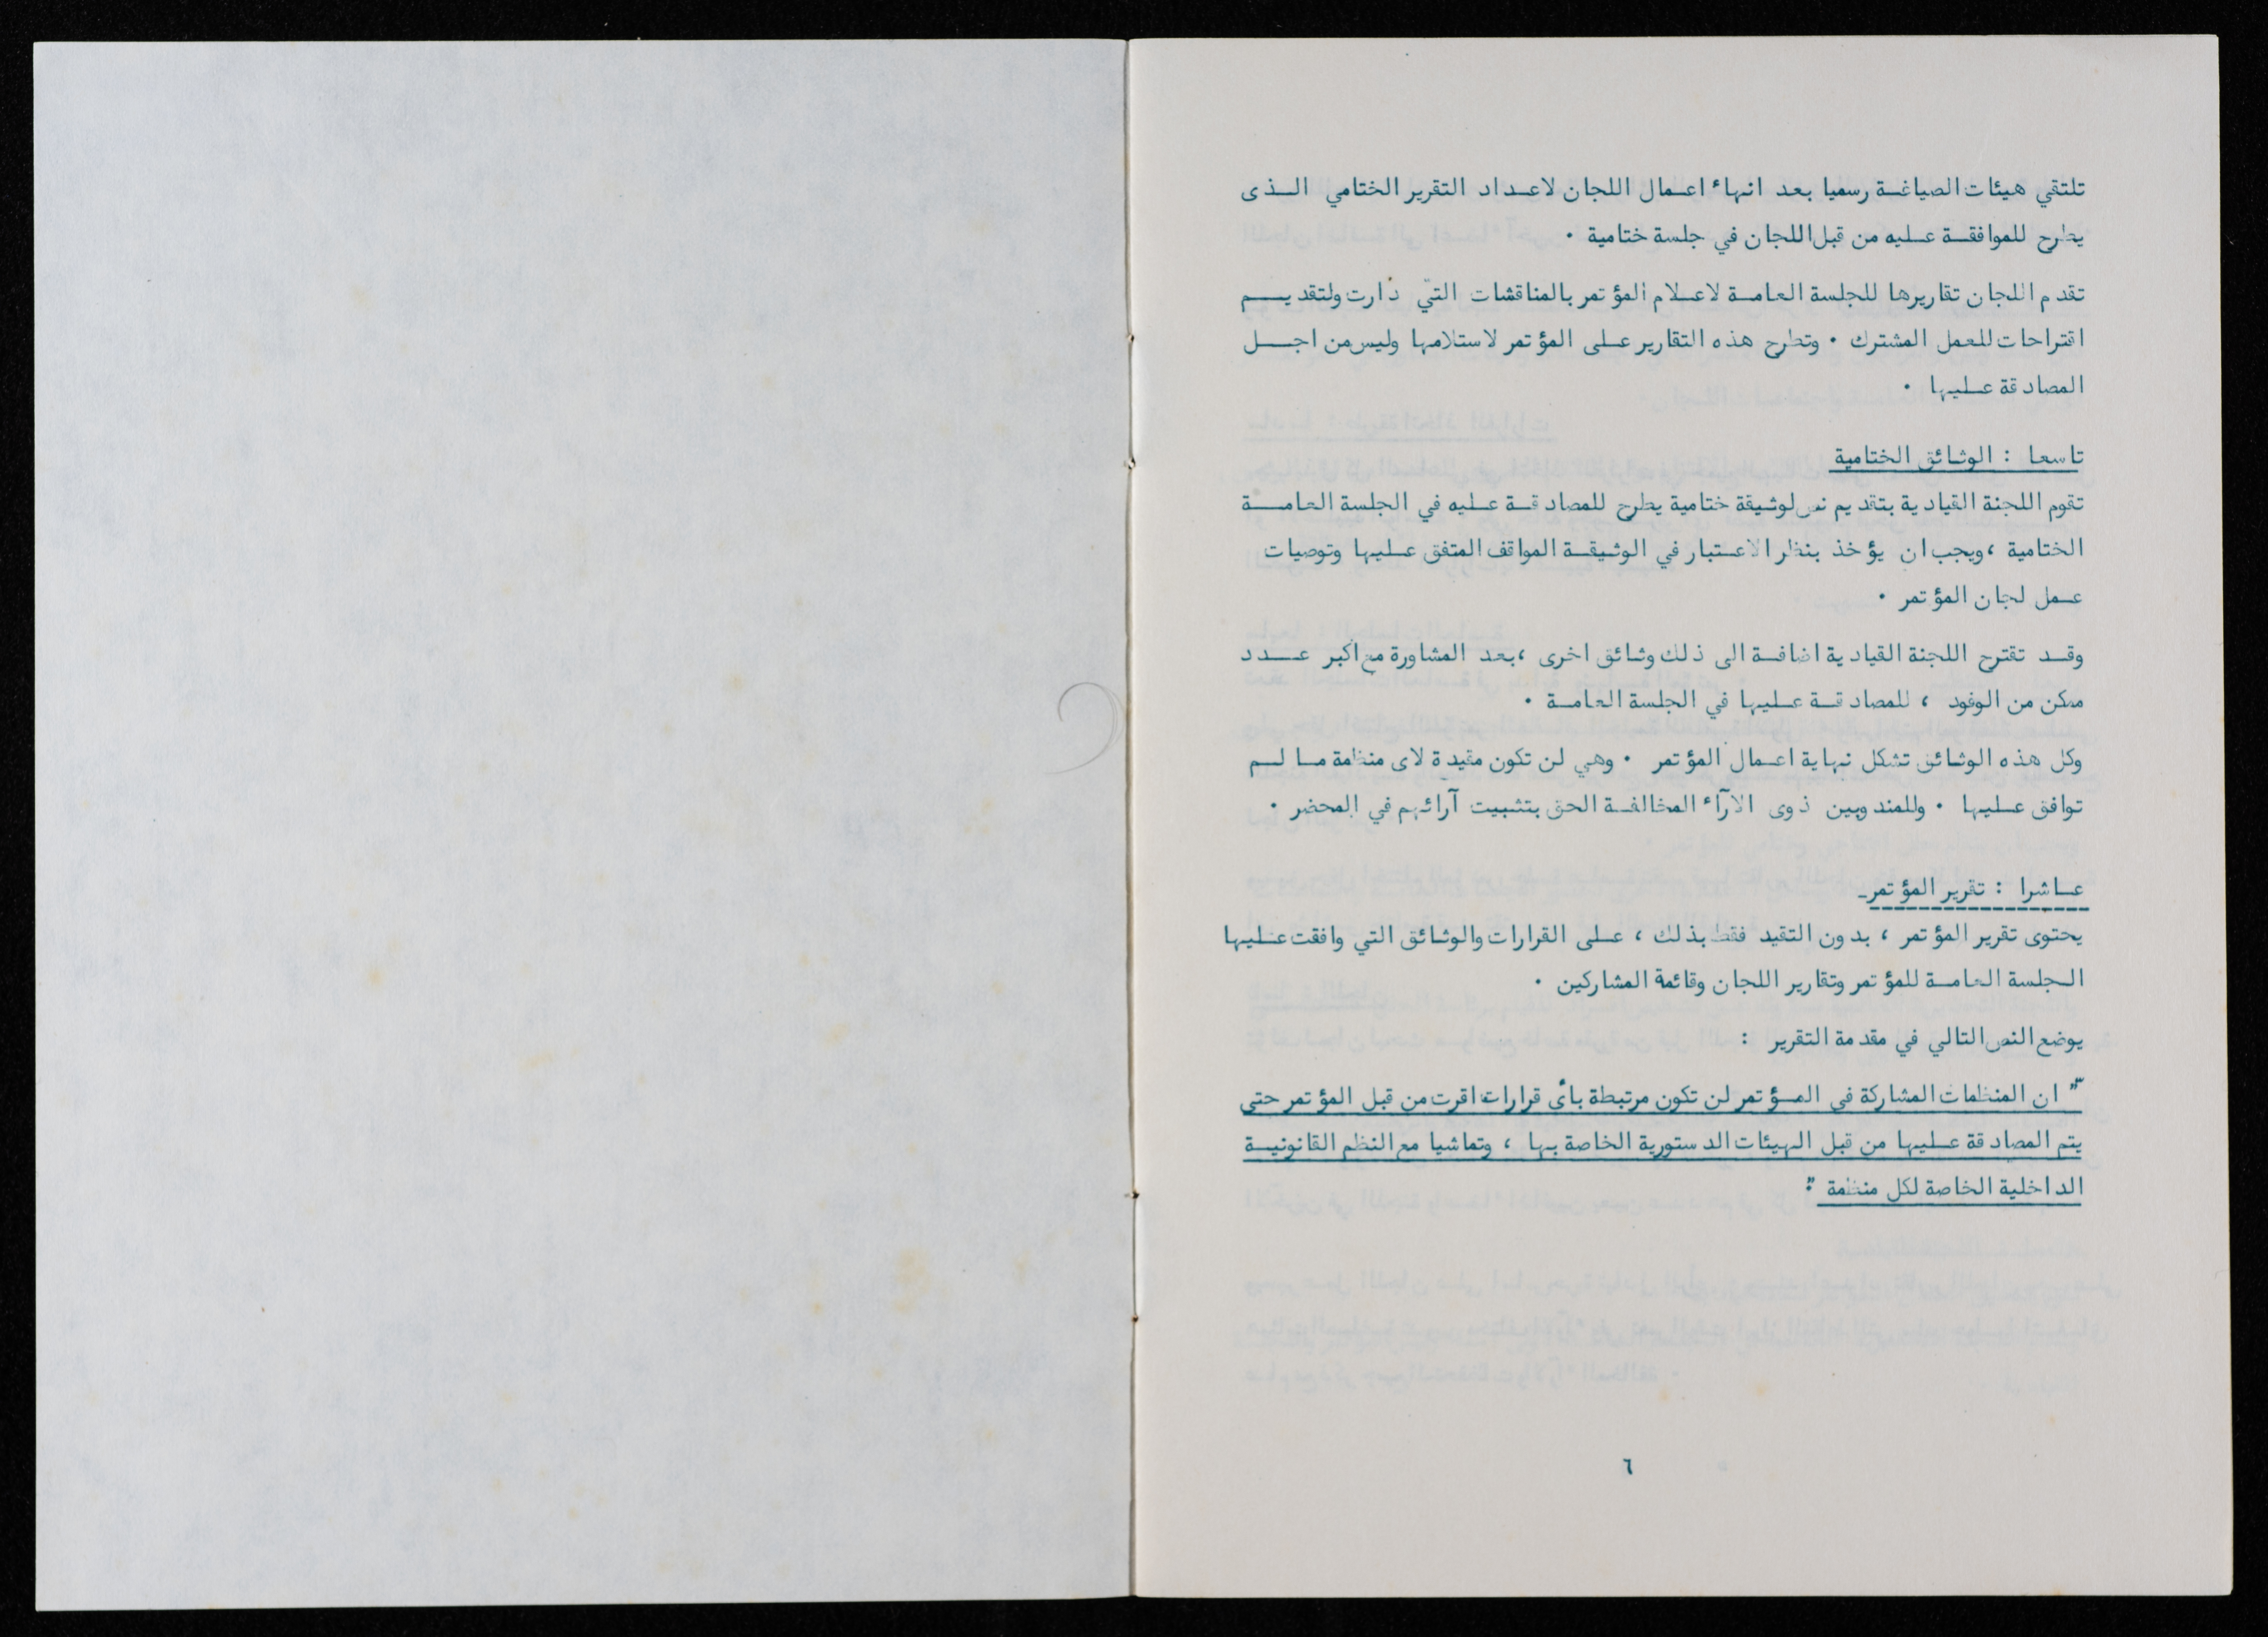 تلتقي هيئات الصياغة رسميا بعد انهاء اعمال اللجان لاعداد التقرير الختامي الذى
يطرح للموافقة عليه من قبل اللجان في جلسة ختامية ٠
تقدم اللجان تقاريرها للجلسة العامة لاعلام المؤتمر بالمناقشات التي دارت ولتقديم
اقتراحات للعمل المشترك ٠ وتطرح هذه التقارير على المؤتمر لاستلامها وليس من اجل
المصادقة عليها ٠
تاسعا : الوثائق الختامية
تقوم اللجنة القيادية بتقديم نص لوثيقة ختامية يطرح للمصادقة عليه في الجلسة العامة
الختامية ، ويجب ان يؤخذ بنظر الاعتبار في الوثيقة المواقف المتفق عليها وتوصيات
عمل لجان المؤتمر ٠
وقد تقترح اللجنة القيادية اضافة الى ذلك وثائق اخرى ، بعد المشاورة مع اكبر عدد
ممكن من الوفود ، للمصادقة عليها في الجلسة العامة ٠
وكل هذه الوثائق تشكل نهاية اعمال المؤتمر ٠ وهي لن تكون مقيدة لاى منظمة ما لم
توافق عليها ٠ وللمندوبين ذوى الارآء المخالفة الحق بتثبيت آرائهم في المحضر ٠
عاشرا : تقرير المؤتمر
يحتوى تقرير المؤتمر ، بدون التقيد فقط بذلك ، على القرارات والوثائق التي وافقت عليها
الجلسة العامة للمؤتمر وتقارير اللجان وقائمة المشاركين ٠
يوضع النص التالي في مقدمة التقرير :
" ان المنظمات المشاركة في المؤتمر لن تكون مرتبطة بأى قرارات اقرت من قبل المؤتمر حتى
يتم المصادقة عليها من قبل الهيئات الدستورية الخاصة بها ، وتماشيا مع النظم القانونية
الداخلية الخاصة لكل منظمة "٠
٦